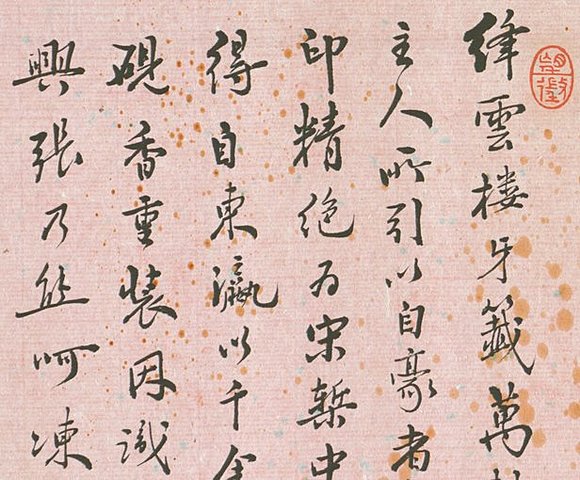 絳雲樓牙籤萬
主人所引以自豪者
印精絕為宋槧中
得自東瀛以千金
硯香重裝因識
興張乃熊呵凍